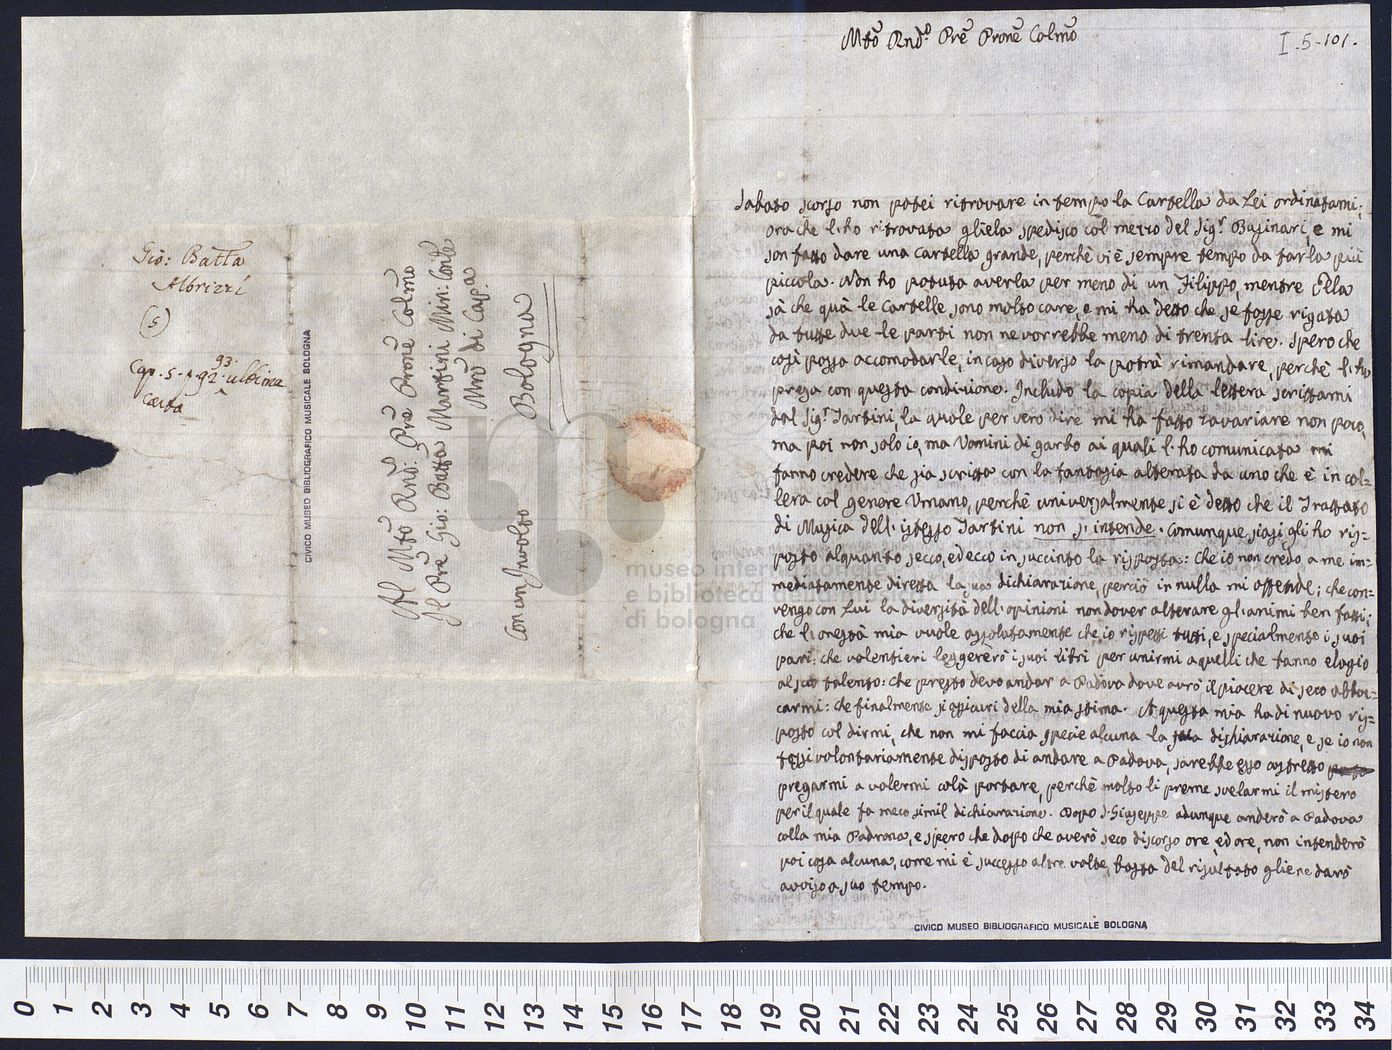 Gio: Batta
Albrizzi
(5)
Cap. 5 - p. 92. 93. albione
carta
CIVICO MUSEO BIBLIOGRAFICO MUSICALE BOLOGNA
Al Mto Rndo Pre Prone Colmo
Il Pre Gio: Batta Martini Min: Conle
Mro di Capa
Bologna
con un Involto
museo internazionale
e biblioteca della musica
di bologna
Mto Rndo Pre Prone Colmo
I-5-101.
Sabato scorso non potei ritrovare in tempo la Cartella da Lei ordinatami;
ora che l'ho ritrovata gliela spedisco col mezzo del Sigr Businari, e mi
son fatto dare una Cartella grande, perchè vi è sempre tempo da farla più
piccola. Non ho potuta averla per meno di un Filippo, mentre Ella
sà che quà le Cartelle sono molto care, e mi ha detto che se fosse rigata
da tutte due le parti non ne vorrebbe meno di trenta lire. Spero che
così possa accomodarle, in caso diverso la potrà rimandare, perchè l'ho
presa con questa condizione. Includo la copia della lettera scrittami
dal Sigr Tartini, la quale per vero dire mi ha fatto tavariare non poco,
ma poi non solo io, ma Uomini di garbo ai quali l'ho comunicata mi
fanno credere che sia scritta con la fantasia alterata da uno che è in col=
lera col genere Umano, perchè universalmente si è detto che il Trattato
di Musica dell'istesso Tartini non s'intende. Comunque siasi gli ho ris=
posto alquanto secco, ed ecco in succinto la risposta: che io non credo, a me im=
mediatamente diretta la sua dichiarazione, perciò in nulla mi offende; che con=
vengo con Lui la diversità dell'opinioni non dover alterare gl'animi ben fatti;
che l'onestà mia vuole assolutamente che io rispetti tutti, e specialmente i suoi
pari; che volentieri leggererò i suoi Libri per unirmi a quelli che fanno elogio
al suo talento: che presto devo andar a Padova dove avrò il piacere di seco abboc=
carmi: che finalmente si assicuri della mia stima. A questa mia ha di nuovo ris=
posto col dirmi, che non mi faccia specie alcuna la sua dichiarazione, e se io non
fossi volontariamente disposto di andare a Padova, sarebbe esso costretto
pregarmi a volermi colà portare, perchè molto li preme svelarmi il mistero
per il quale fa meco simil dichiarazione. Dopo S. Giuseppe adunque anderò a Padova
colla mia Padrona, e spero che dopo che averò seco discorso ore, ed ore, non intenderò
poi cosa alcuna, come mi è successo altre volte, basta del risultato gliene darò
avviso a suo tempo.
CIVICO MUSEO BIBLIOGRAFICO MUSICALE BOLOGNA
0 1 2 3 4 5 6 7 8 9 10 11 12 13 14 15 16 17 18 19 20 21 22 23 24 25 26 27 28 29 30 31 32 33 34